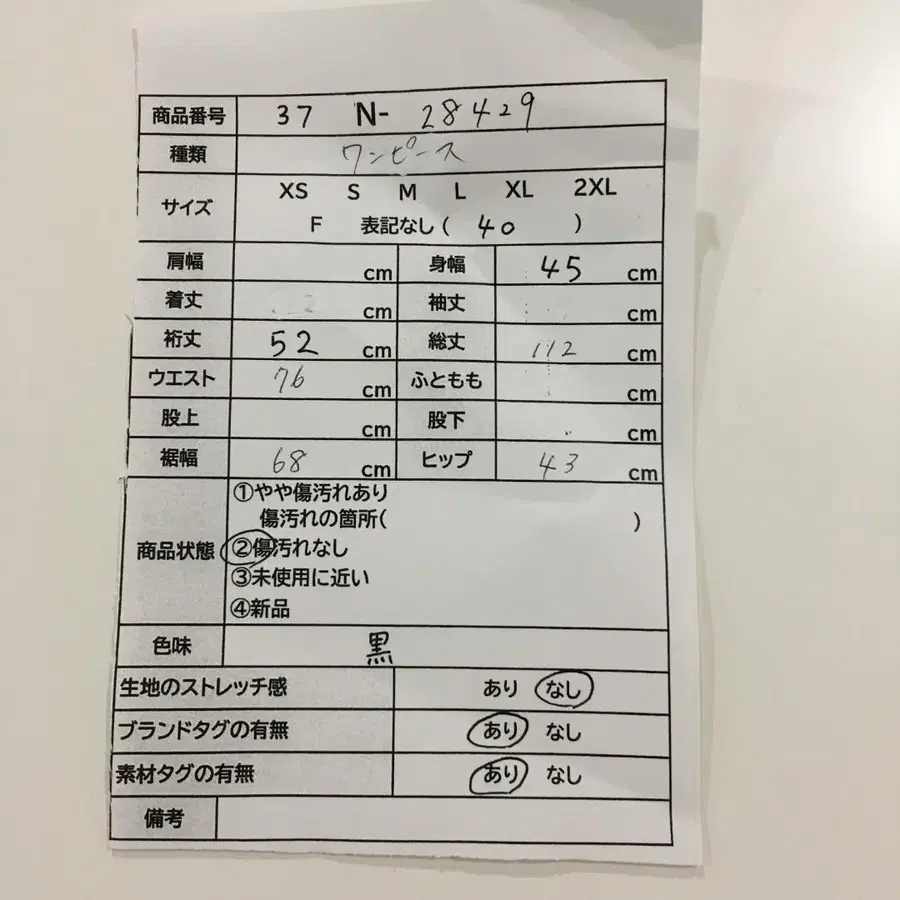 商品番号 37 N- 28429
種類 ワンピース
サイズ XS S M L XL 2XL
F 表記なし ( 40 )
肩幅 cm 身幅 45 cm
着丈 cm 袖丈 cm
裄丈 52 cm 総丈 112 cm
ウエスト 76 cm ふともも cm
股上 cm 股下 cm
裾幅 68 cm ヒップ 43 cm
①やや傷汚れあり
傷汚れの箇所( )
商品状態 ②傷汚れなし
③未使用に近い
④新品
色味 黒
生地のストレッチ感 あり なし
ブランドタグの有無 あり なし
素材タグの有無 あり なし
備考